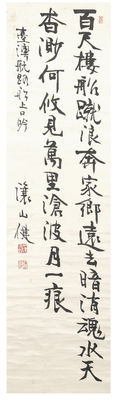 百尺樓船蹴浪奔家鄉遠去暗消魂水天
杳渺何攸見萬里滄波月一痕
臺灣航路船上口吟
讓山僊